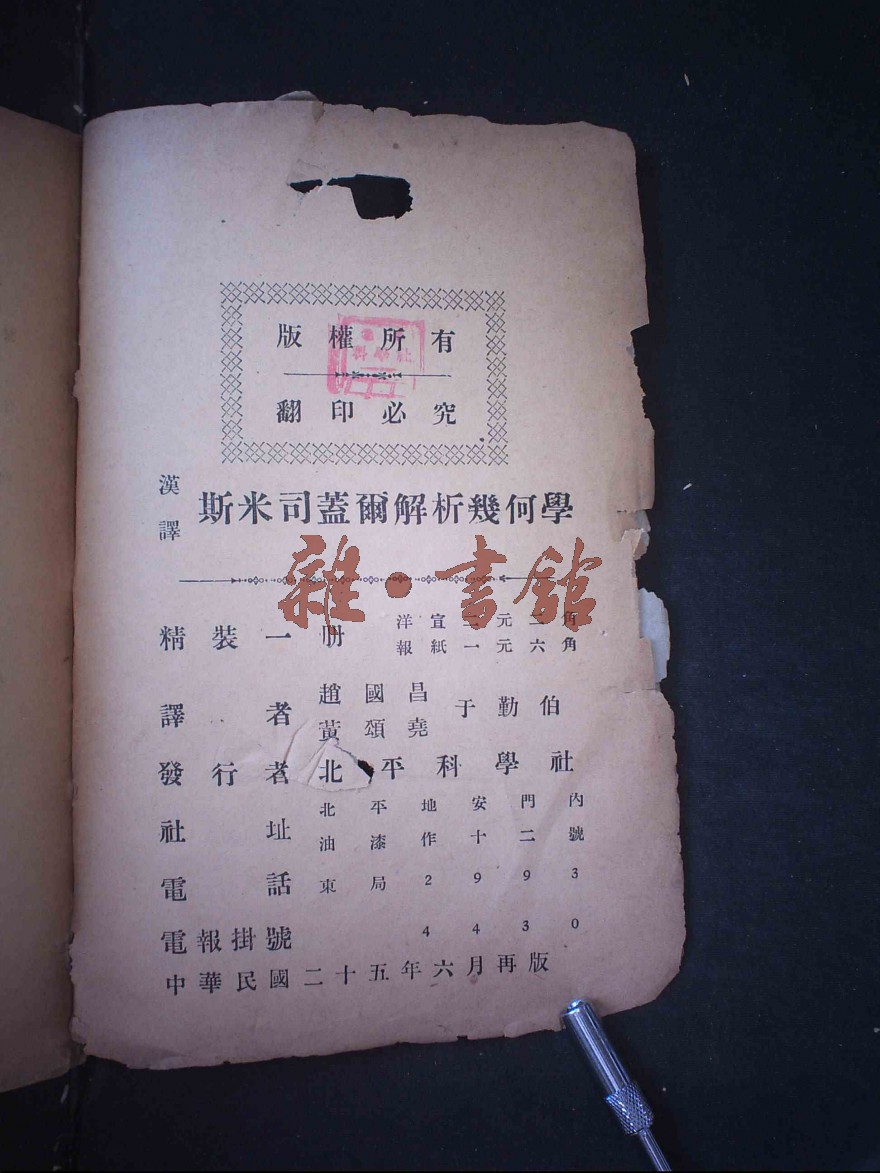 版權所有
科學社
翻印必究
漢譯 斯米司蓋爾解析幾何學
雜·書館
精裝一册 洋宣二元二角
報紙一元六角
譯者 趙國昌 于勤伯
黃頌堯
發行者 北平科學社
社址 北平地安門內
油漆作十二號
電話 東局2993
電報掛號 4430
中華民國二十五年六月再版